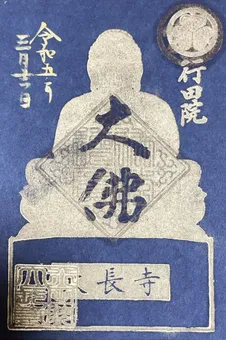 行田院
大佛
長寺
令和五年
三月廿一日